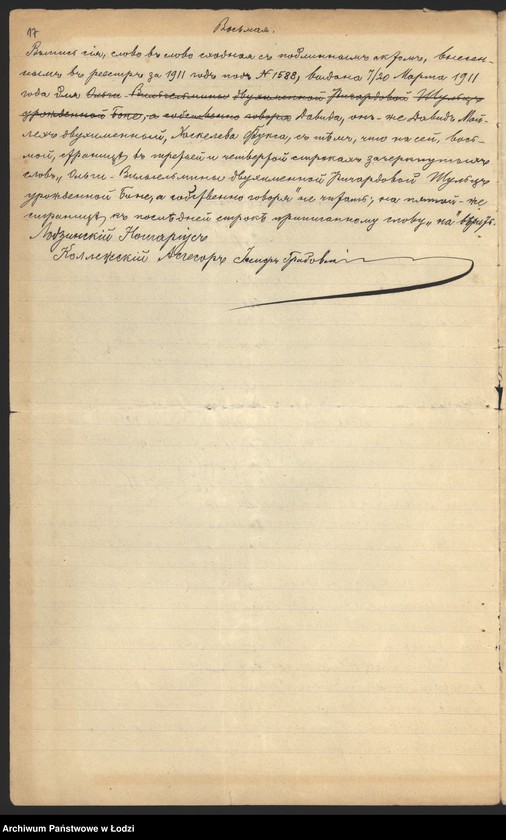 17
Восьмая.
Выпись сія, слово въ слово сходная съ подлиннымъ актомъ, внесен-
нымъ въ реестръ за 1911 годъ подъ № 1588, выдана 7/20 Марта 1911
года для Ольги Вильгельмины двухименной Ричардовой Шульцъ
урожденной Бине, а собственно говоря Давида, онъ-же Давидъ Май-
лехъ двухименный, Хаскелева Фукса, съ тѣмъ, что на сей, вось-
мой, страницѣ, въ третьей и четвертой строкахъ зачеркнутыхъ
словъ „Ольги-Вильгельмины двухименной Ричардовой Шульцъ
урожденной Бине, а собственно говоря" не читать; на пятой-же
страницѣ къ послѣдней строкѣ приписанному слову „на" вѣрить.
Лодзинскій Нотаріусъ
Коллежскій Ассесоръ Грабовскій
Archiwum Państwowe w Łodzi